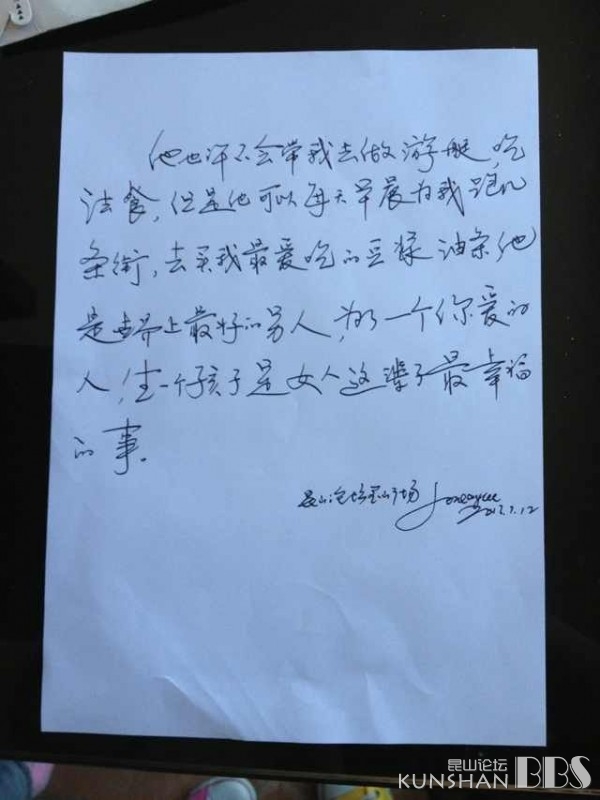 他也许不会带我去做游艇,吃
法餐,但是他可以每天早晨为我跑几
条街,去买我最爱吃的豆浆油条他
是世界上最好的男人,为了一个你爱的
人,生一个孩子是女人这辈子最幸福
的事.
昆山论坛 广场
昆山论坛
KUNSHAN BBS